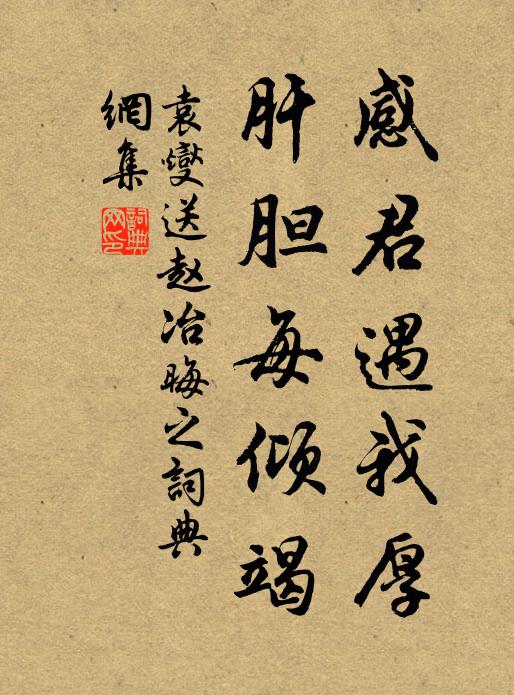 感君遇我厚
肝胆每倾竭
袁燮送赵冶晦之詞典
網集
詞典
网印